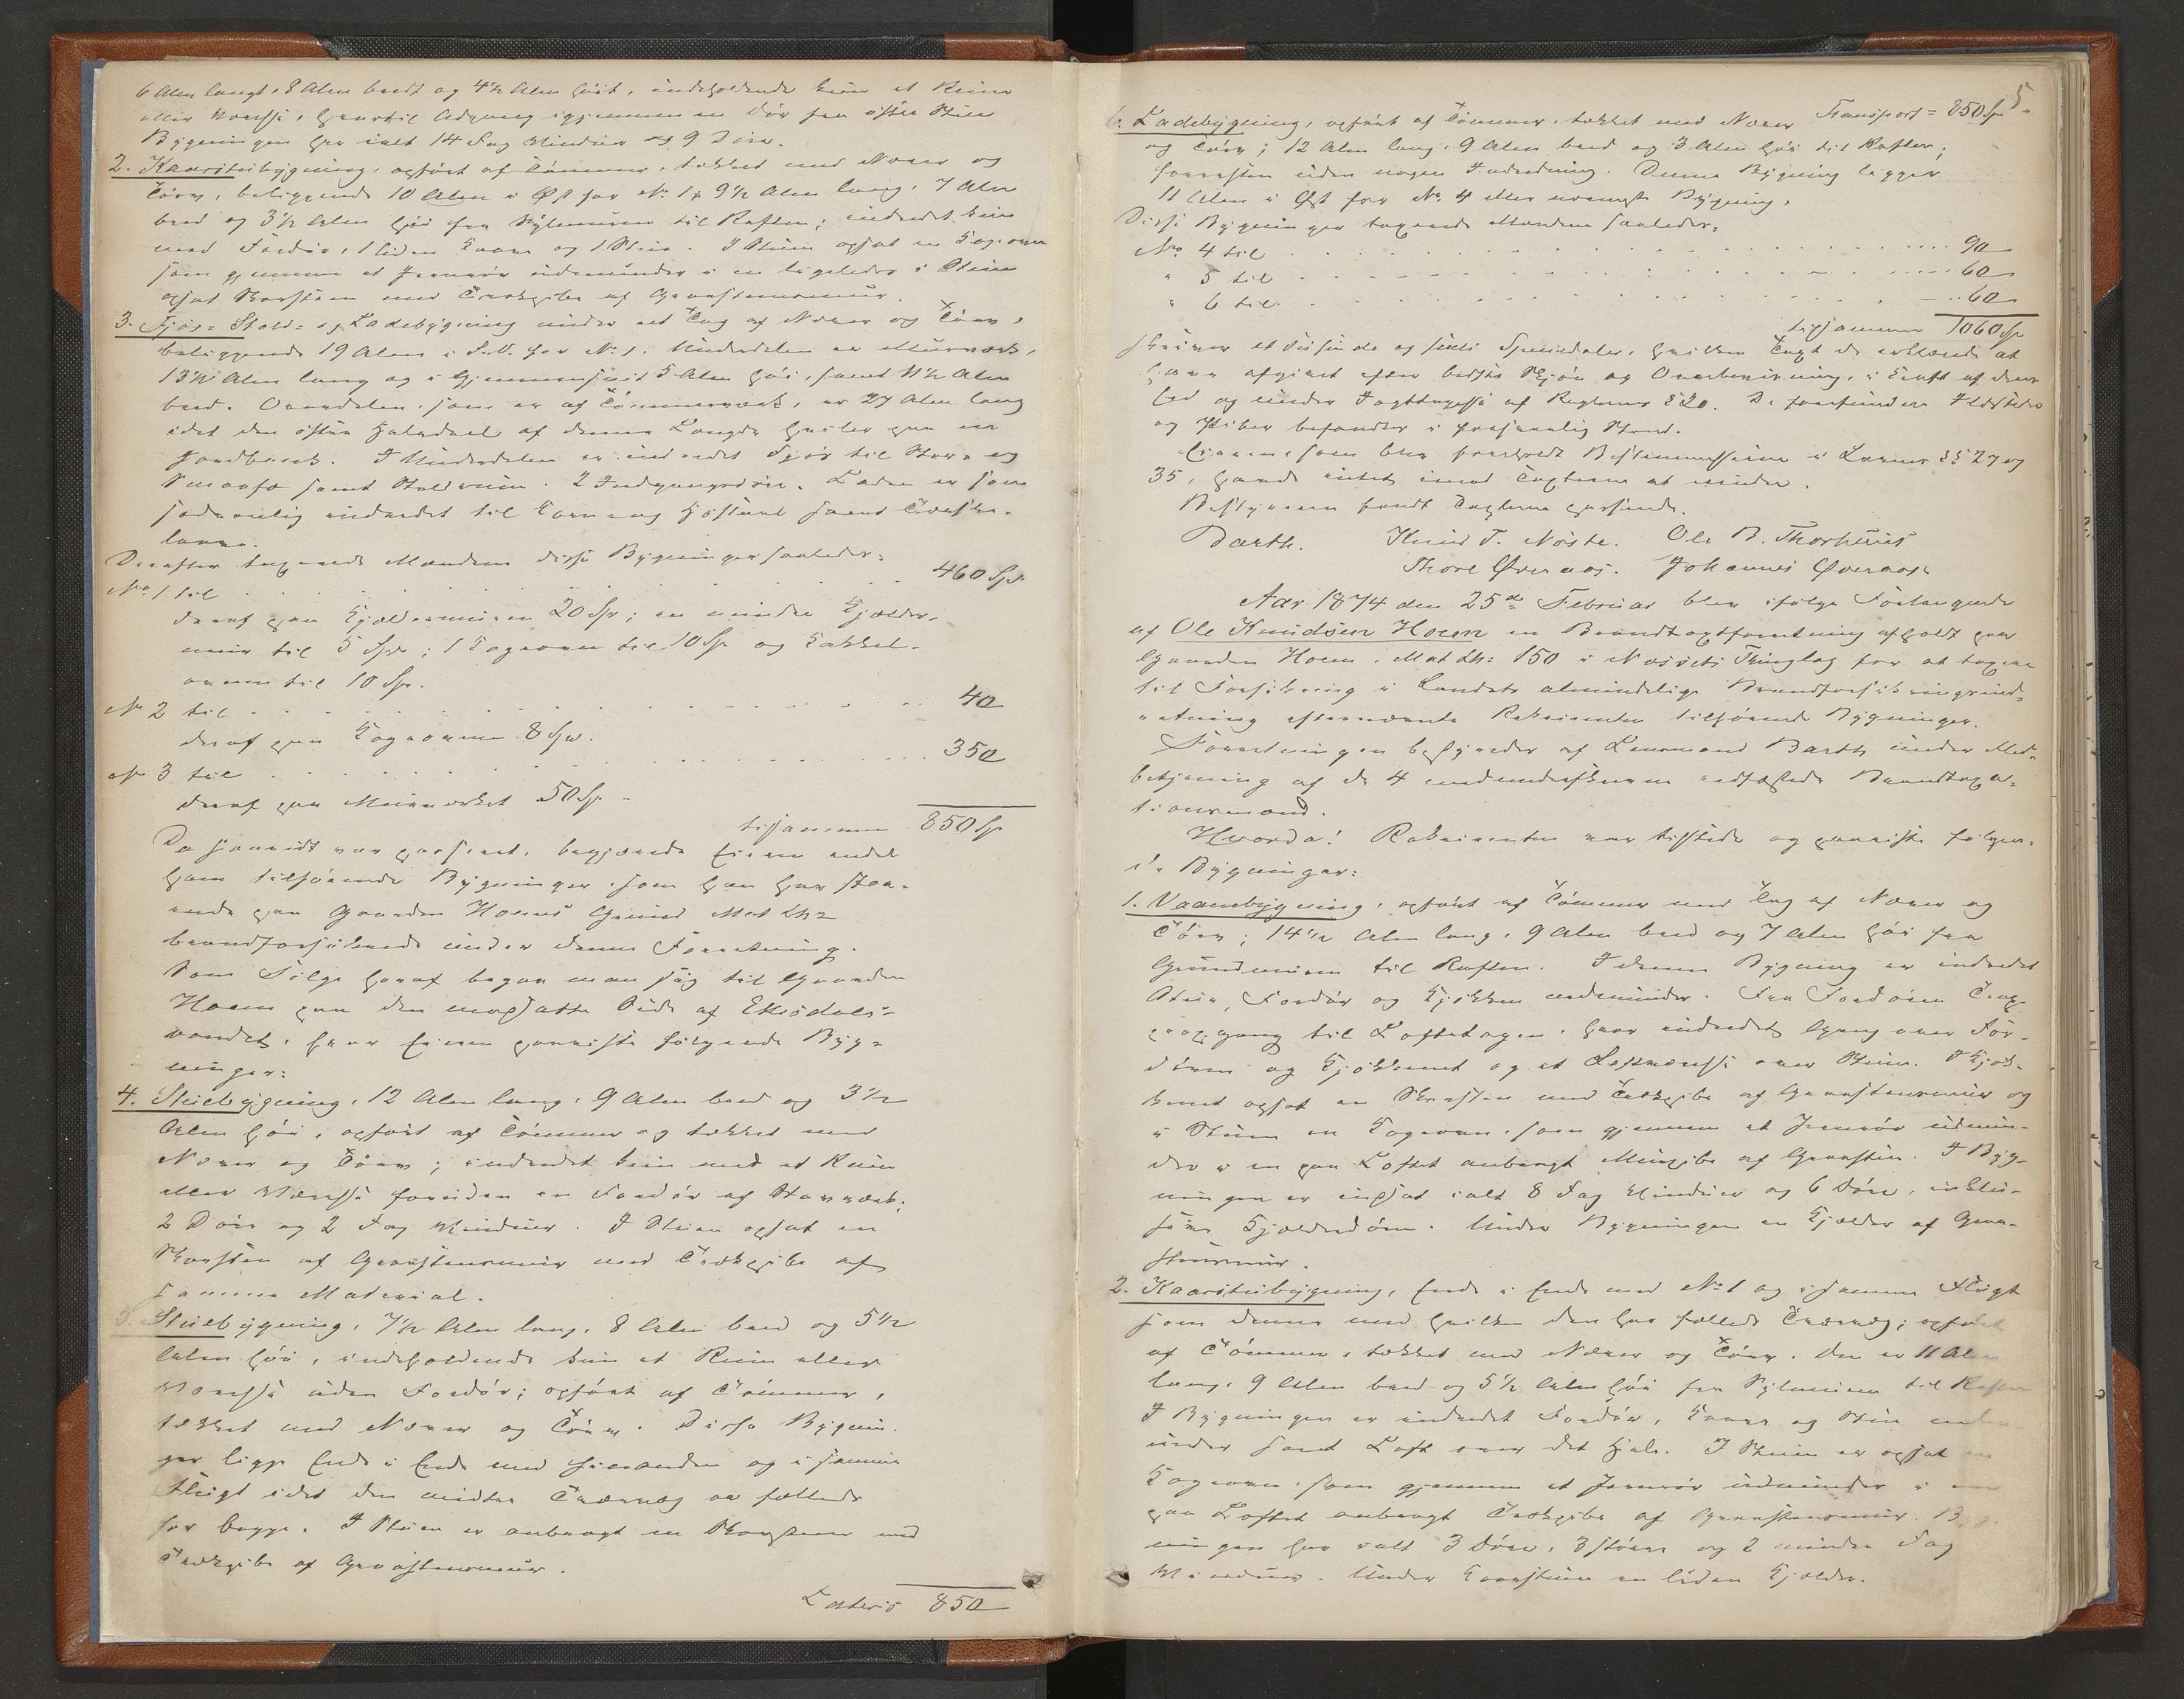 6 Alen langt, 8 Alen bredt og 4½ Alen høit, indeholdende kun et Rum
eller Værelse, hvortil Adgang igjennem en Dør fra østre Stue
Bygningen har ialt 14 Fag Vinduer og 9 Døre.
2. Kaarstubygning, opført af Tømmer, tækket med Næver og
Törv, beliggende 10 Alen i Øst for No 1, 9½ Alen lang, 7 Alen
bred og 3½ Alen høi fra Sylemuren til Raften; indredet kun
med Fordør, 1 liden Kove og 1 Stue. I Stuen opsat en Kogeovn
som gjennem et Jernrör udmunder i en ligeledes i Stuen
opsat Skorsten med Trækpibe af Graastensmuur.
3. Fjøs- Stald- og Ladebygning under et Tag af Næver og Törv,
beliggende 19 Alen i S.V. for No 1. Underdelen er Murværk,
13½ Alen lang og i Gjennemsnit 5 Alen høi, samt 11½ Alen
bred. Overdelen, som er af Tømmerværk, er 27 Alen lang
idet den østre Halvdeel af denne Længde hviler paa en
Jordbank. I Underdelen er indredet Fjös til Stor- og
Smaafæ samt Staldrum. 2 Indgangsdöre. Laden er som
sædvanlig indredet til Korn og Höstænl samt Tærske-
laave.
Derefter taxerede Mændene disse Bygninger saaledes:
No 1 til . . . . . . 460 Spd
deraf paa Kjældermuren 20 Sp; en mindre Kjælder-
muur til 5 Spd; 1 Kogeovn til 10 Sp og Kakkel-
ovnen til 10 Sp.
No 2 til . . . . . . 40
deraf paa Kogeovnen 8 Spd.
No 3 til . . . . . . 350
deraf paa Muurværket 50 Sp.
tilsammen 850 Sp
Da saavidt var passeret, begjærede Eieren endel
ham tilhörende Bygninger som han har staa-
ende paa Gaarden Hoems Grund Mat Lb=
brandforsikrede under denne Forretning.
Som Fölge heraf begav man sig til Gaarden
Hoem paa den modsatte Side af Eikisdals-
vandet, hvor Eieren paaviste følgende Byg-
ninger:
4. Stuebygning, 12 Alen lang, 9 Alen bred og 3½
Alen høi, opført af Tømmer og tækket med
Næver og Törv; indredet kun med et Rum
eller Værelse foruden en Fordör af Stavværk;
2 Döre og 2 Fag Vinduer. I Stuen opsat en
Skorsten af Graastensmuur med Trækpibe af
samme Material.
5. Stuebygning, 7½ Alen lang, 8 Alen bred og 5½
Alen høi, indeholdende kun et Rum eller
Værelse uden Fordör; opført af Tömmer,
tækket med Næver og Törv. Disse Bygnin-
ger ligge Ende i Ende med hinanden og i samme
Flugt idet den midtre Tværvæg er fælleds
for begge. I Stuen er anbragt en Skorsteen med
Trækpibe af Graastensmuur.
Lateris 850
5
Transport = 850 Sp
6. Ladebygning, opført af Tömmer, tækket med Næver
og Törv; 12 Alen lang, 9 Alen bred og 3 Alen høi til Raften;
forresten uden nogen Indredning. Denne Bygning ligger
11 Alen i Øst for No 4 eller nævnte Bygning.
Disse Bygninger taxerede Mændene saaledes:
No 4 til . . . . . . 90
" 5 til . . . . . . 60
" 6 til . . . . . . 60
tilsammen 1060 Sp
skriver et Tusinde og sexti Speciedaler, hvilken Taxt de erklærede at
have afgivet efter bedste Skjön og Overbeviisning, i Kraft af deres
Eed og under Iagttagelse af Reglerne § 20. De forefundne Ildsteder
og Piber befandtes i forsvarlig Stand.
Eieren, som blev foreholdt Bestemmelserne i Lovens §§ 27 og
35, havde intet imod Taxterne at erindre.
Bestyreren fandt Taxterne passende.
Barth. Knud T. Nöste. Ole B. Thorhuus
Thore Øveraas. Johannes Øveraas.
Aar 1874 den 25de Februar blev ifølge Forlangende
af Ole Knudsen Hoem en Brandtaxtforretning afholdt paa
Gaarden Hoem, Mat Lb: 150 i Næssets Thinglag for at taxere
til Forsikring i Landets almindelige Brandforsikringsind-
retning efternævnte Rekvirenten tilhörende Bygninger.
Forretningen bestyredes af Lensmand Barth under Med-
betjening af de 4 medunderskrevne edfæstede Brandtaxa-
tionsmænd.
Hvorda! Rekvirenten var tilstede og paaviste følgen-
de Bygninger:
1. Vaanebygning, opført af Tömmer med Tag af Næver og
Törv; 14½ Alen lang, 9 Alen bred og 7 Alen høi fra
Grundmuren til Raften. I denne Bygning er indredet
Stue, Fordör og Kjökken nedenunder. Fra Fordören Trap-
peopgang til Loftetagen, hvor indredet Gang over For-
dören og Kjökkenet og et Loftværelse over Stuen. I Kjök-
kenet opsat en Skorsten med Trækpibe af Graastensmuur og
i Stuen en Kogeovn som gjennem et Jernrör udmun-
der i en paa Loftet anbragt Muurpibe af Graasten. I Byg-
ningen er indsat ialt 8 Fag Vinduer og 6 Döre, inklu-
sive Kjælderdören. Under Bygningen en Kjælder af Graa-
stensmuur.
2. Kaarstubygning, Ende i Ende med No 1 og i samme Flugt
som denne med hvilken den har fælleds Tværvæg; opført
af Tömmer, tækket med Næver og Törv. Den er 11 Alen
lang, 9 Alen bred og 5½ Alen høi fra Sylmuren til Raften
I Bygningen er indredet Fordör, Kove og Stue neden
under samt Loft over det Hele. I Stuen er opsat en
Kogeovn som gjennem et Jernrör udmunder i en
paa Loftet anbragt Trækpibe af Graastensmuur. Byg-
ningen har ialt 3 Döre, 3 större og 2 mindre Fag
Vinduer. Under Kaarstuen en liden Kjælder.